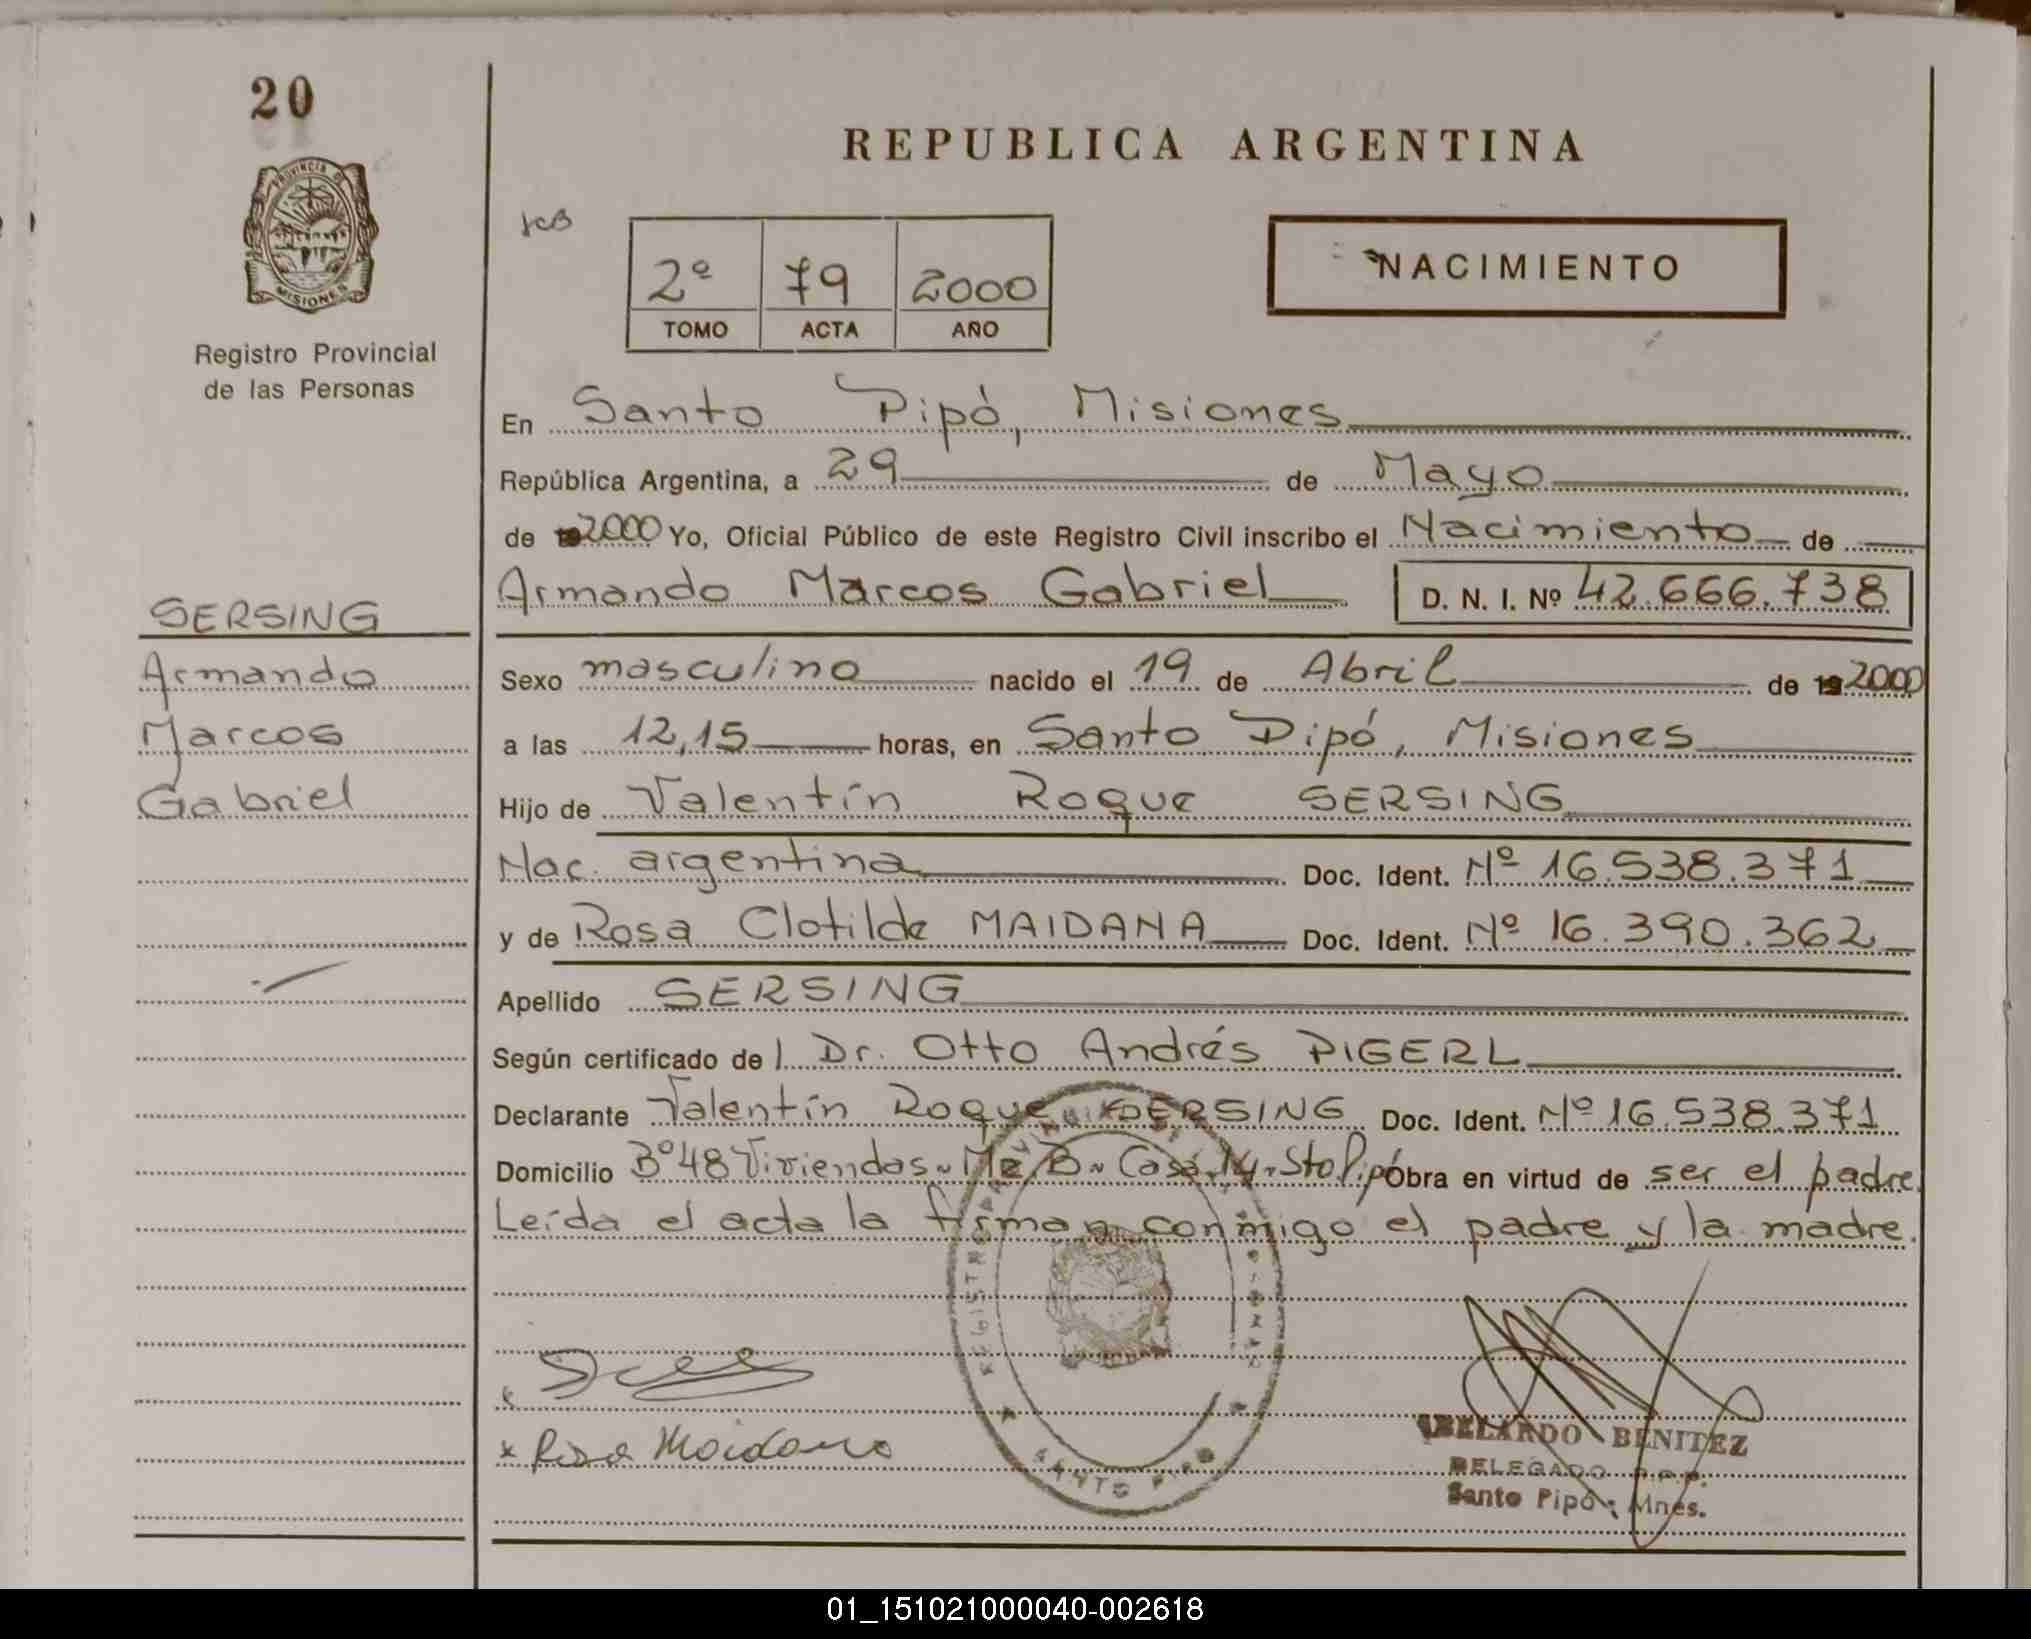 20
REPUBLICA ARGENTINA
PROVINCIA DE
MISIONES
Registro Provincial
de las Personas
2º 79 2000
TOMO ACTA AÑO
NACIMIENTO
En Santo Pipó, Misiones
República Argentina, a 29 de Mayo
de 2000 Yo, Oficial Público de este Registro Civil inscribo el Nacimiento de
Armando Marcos Gabriel D. N. I. Nº 42.666.738
SERSING
Armando
Marcos
Gabriel
Sexo masculino nacido el 19 de Abril de 19 2000
a las 12,15 horas, en Santo Pipó, Misiones
Hijo de Valentín Roque SERSING
Nac. argentina Doc. Ident. Nº 16.538.371
y de Rosa Clotilde MAIDANA Doc. Ident. Nº 16.390.362
Apellido SERSING
Según certificado de l Dr. Otto Andrés PIGERL
Declarante Valentín Roque SERSING Doc. Ident. Nº 16.538.371
Domicilio Bº 48 Viviendas Mz B Casa 14 Sto Pipó Obra en virtud de ser el padre.
Leída el acta la firman conmigo el padre y la madre.
SANTO PIPO
x
x Rosa Maidana
ABELARDO BENITEZ
DELEGADO R.P.P.
Santo Pipó - Mnes.
01_151021000040-002618